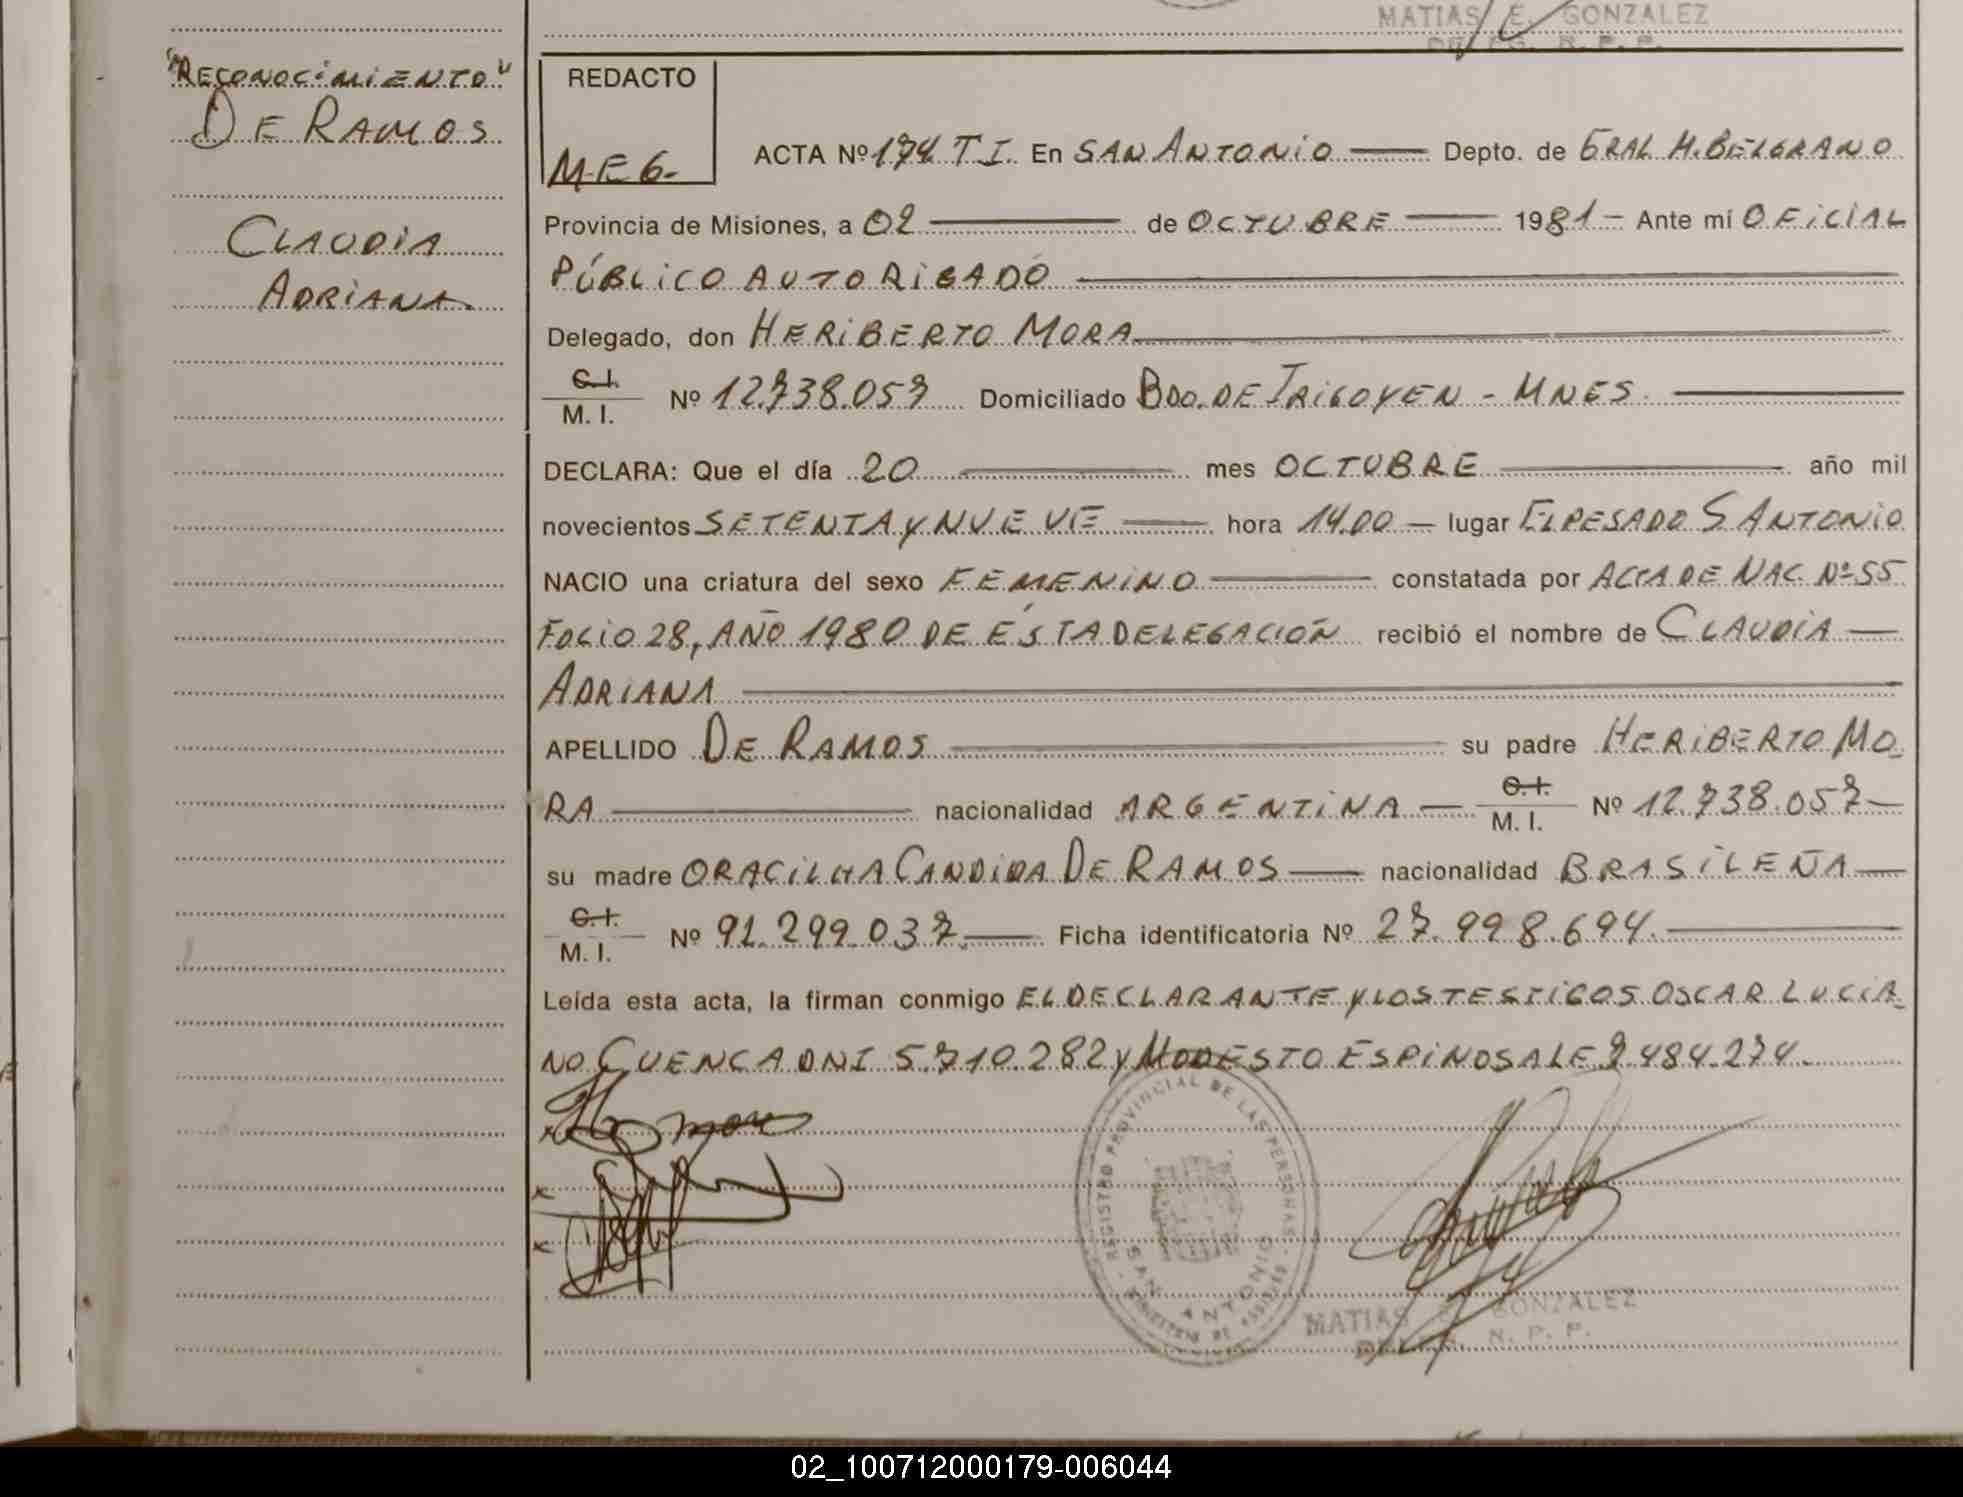 MATIAS E. GONZALEZ
"RECONOCIMIENTO"
DE RAMOS
CLAUDIA
ADRIANA
REDACTO
M.E G.
ACTA Nº 174 T I. En SAN ANTONIO Depto. de GRAL M. BELGRANO
Provincia de Misiones, a 02 de OCTUBRE 1981 - Ante mí OFICIAL
PÚBLICO AUTORIGADO
Delegado, don HERIBERTO MORA
C.I.
M. I. Nº 12.738.057 Domiciliado BDO. DE IRIGOYEN - MNES.
DECLARA: Que el día 20 mes OCTUBRE año mil
novecientos SETENTA y NUEVE hora 14.00 - lugar EL PESADO S ANTONIO
NACIO una criatura del sexo FEMENINO constatada por ACTA DE NAC. Nº 55
FOLIO 28, AÑO 1980 DE ÉSTA DELEGACIÓN recibió el nombre de CLAUDIA
ADRIANA
APELLIDO DE RAMOS su padre HERIBERTO MO-
RA nacionalidad ARGENTINA C.I. M. I. Nº 12.738.057
su madre ORACILHA CANDIDA DE RAMOS nacionalidad BRASILEÑA
C.I.
M. I. Nº 91.299.037 Ficha identificatoria Nº 27.998.694.
Leída esta acta, la firman conmigo EL DECLARANTE y LOS TESTIGOS OSCAR LUCIA-
NO CUENCA DNI 5.710.282 y MODESTO ESPINOSA LE 7.484.274.
REGISTRO PROVINCIAL DE LAS PERSONAS
SAN ANTONIO
MATIAS E. GONZALEZ
R. P. P.
02_100712000179-006044